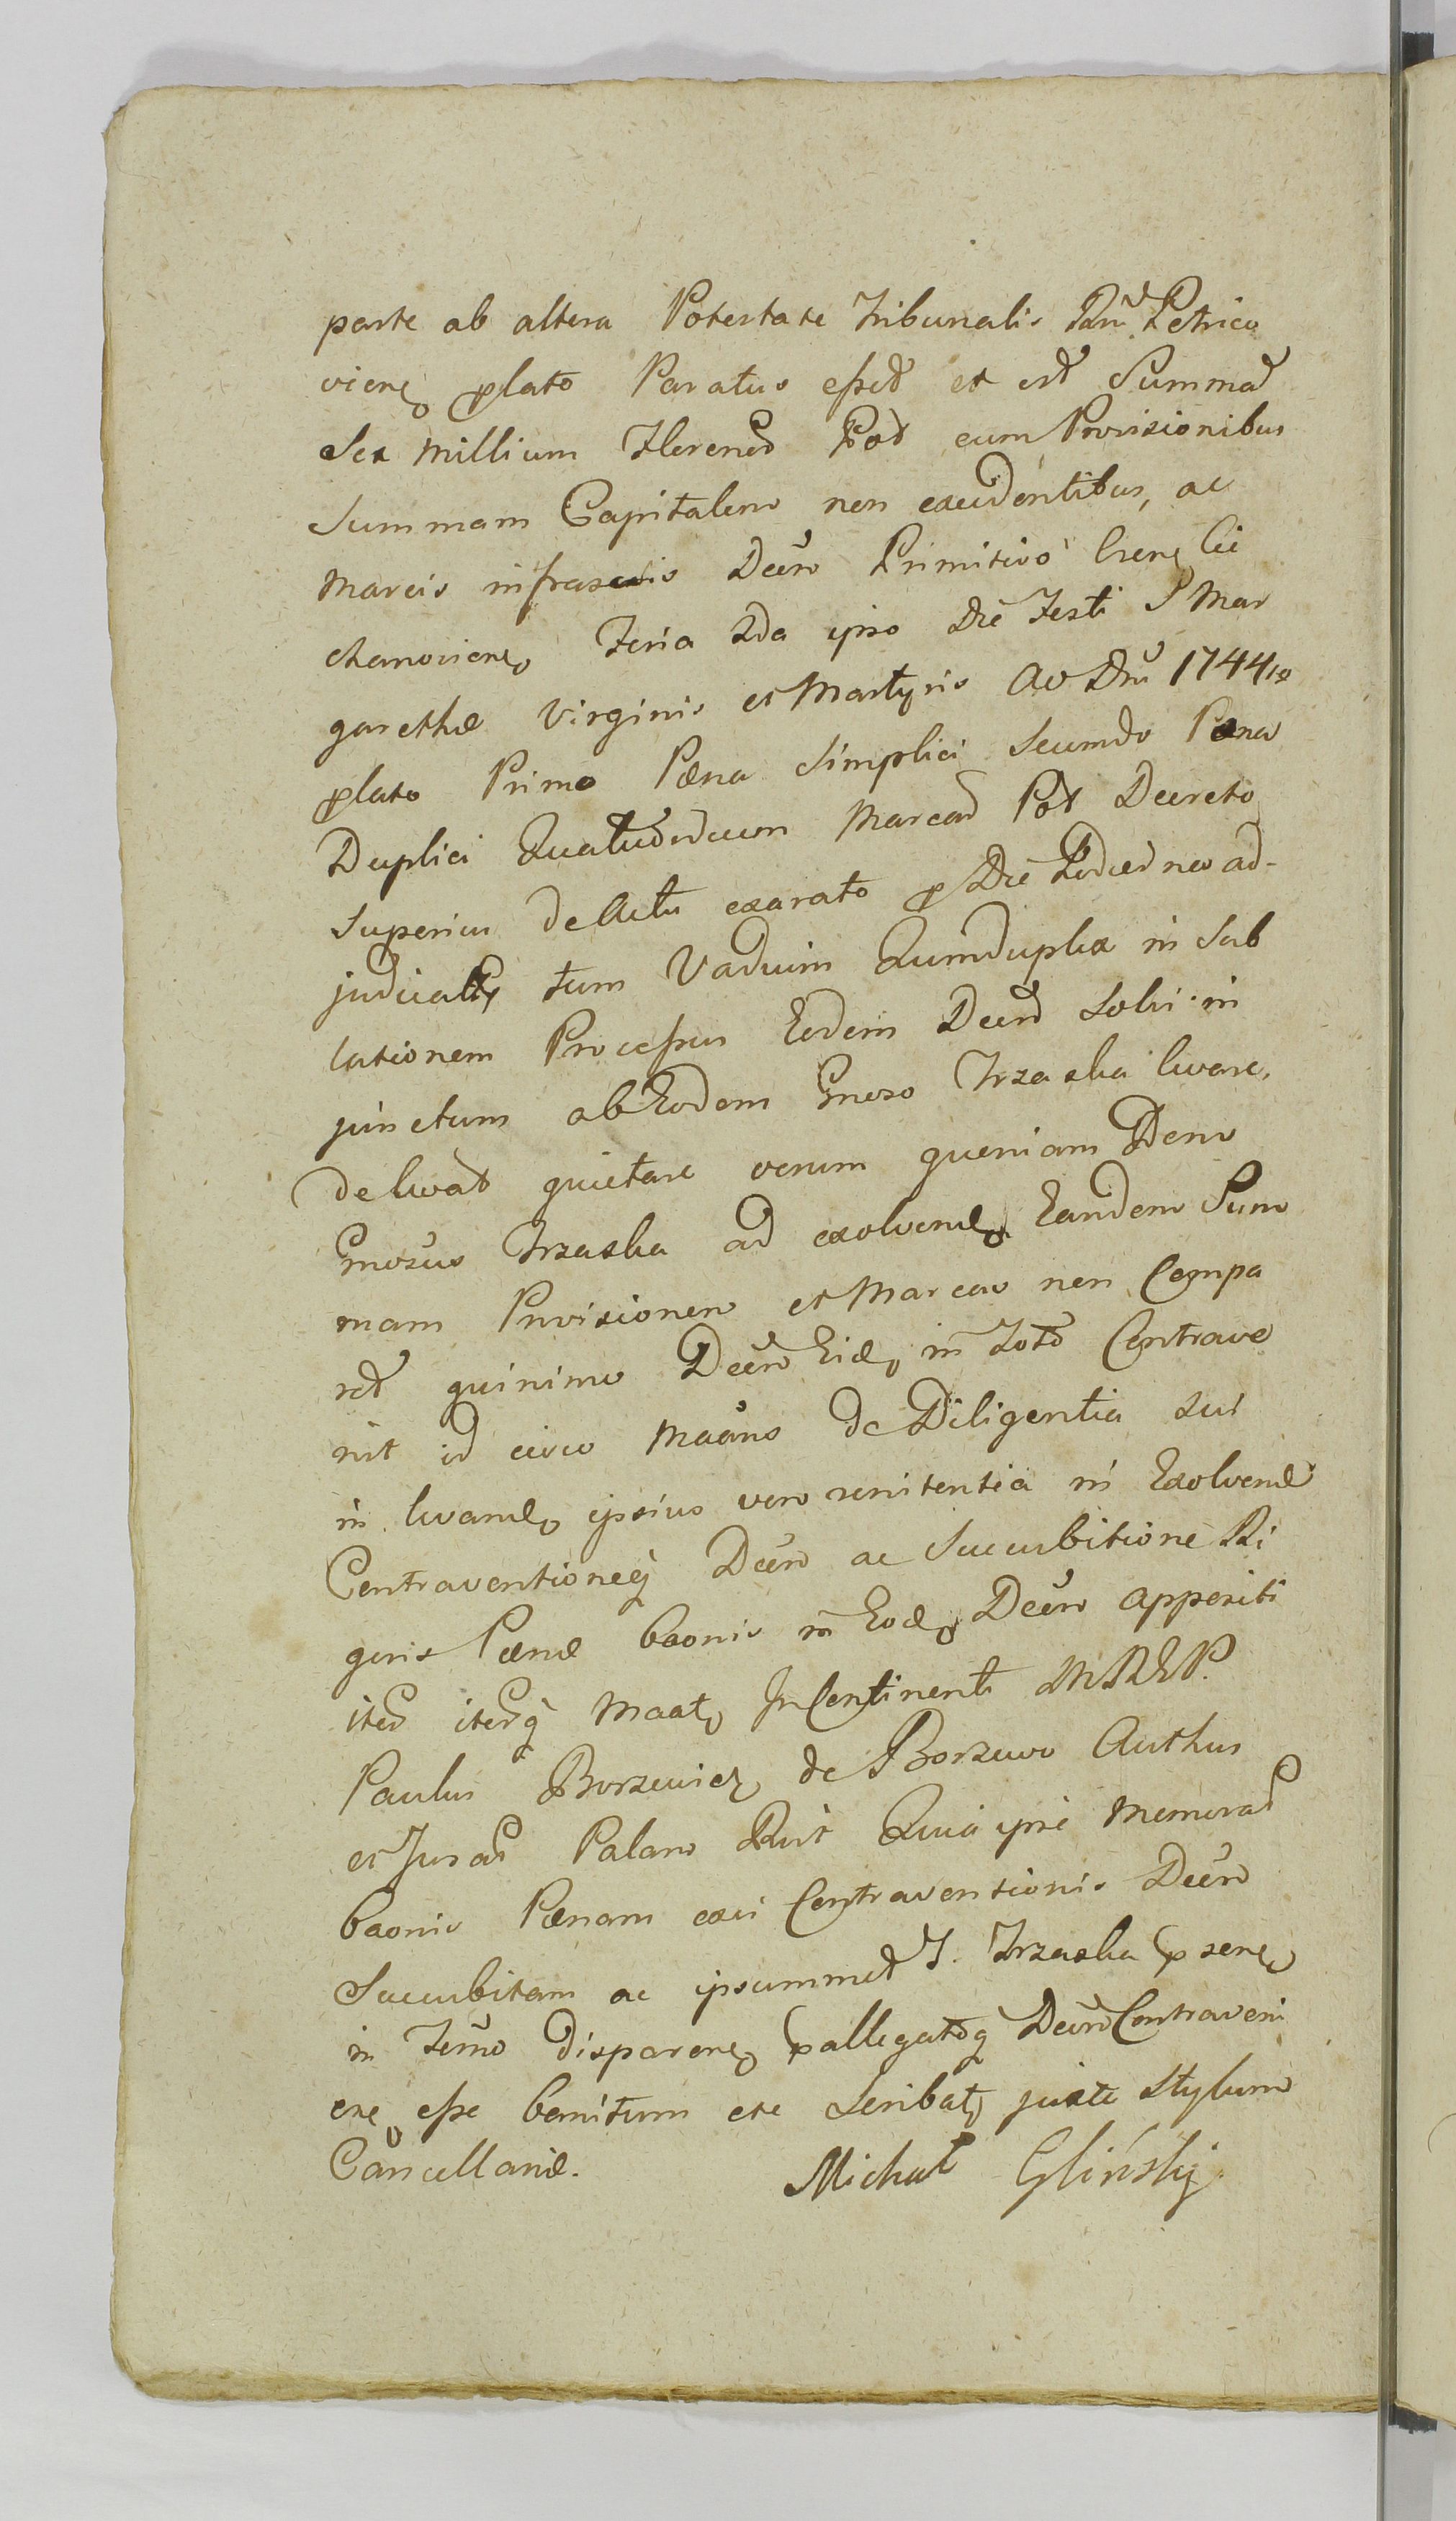 parte ab altera Potestate Tribunalis Rni Petrico
viens plato Paratus esset et est Summad
Sex Millium Florened Pod cum Provisionibus
Summam Capitalem non excedentibus, ac
Marcis infrascriptis Decro Primitivo Crens Cie
chanoviens Feria 2da ipso Die Festi S Mar
garethæ Virginis et Martyris Ao Dni 1744to
plato Primo Pæna Simplici Secundo Pæna
Duplici Quatuordecem Marcad Pod Decreto
Superius de Actu exarato p Die Hodierna ad-
judicatis tum Vadium Quinduplex in Sub
lationem Processus Eodem Decro Solvi in
junctum ab Eodem Gneroso Trzaska levare,
delevat quietare verum quoniam Idem
Gnerosus Trzaska ad exolvend Eandem Sum
mam Provisionem et Marcas non Compa
ret quinimo Decro Eid in Toto Contrave
nit id circo Maans de Diligentia sui
in levand ipsius vero renitentia in Exolvend
Contraventioneq Decro ac Succubitione Ri
goris Pænæ baonis in Eod Decro appositi
ited itedq Maat In Continenti MREP.
Paulus Borzewicz de Borzewo Authus
et Jurad Palam Rvit Quia ipse memorad
baonis Pænam exvi Contraventionis Decro
Succubitam ac ipsummet J. Trzaska psens
in Termo disparens pallegatoq Decro Contraveni
ens esse banitum etc Scribat juxta Stylum
Cancellariæ. Michał Glińsky